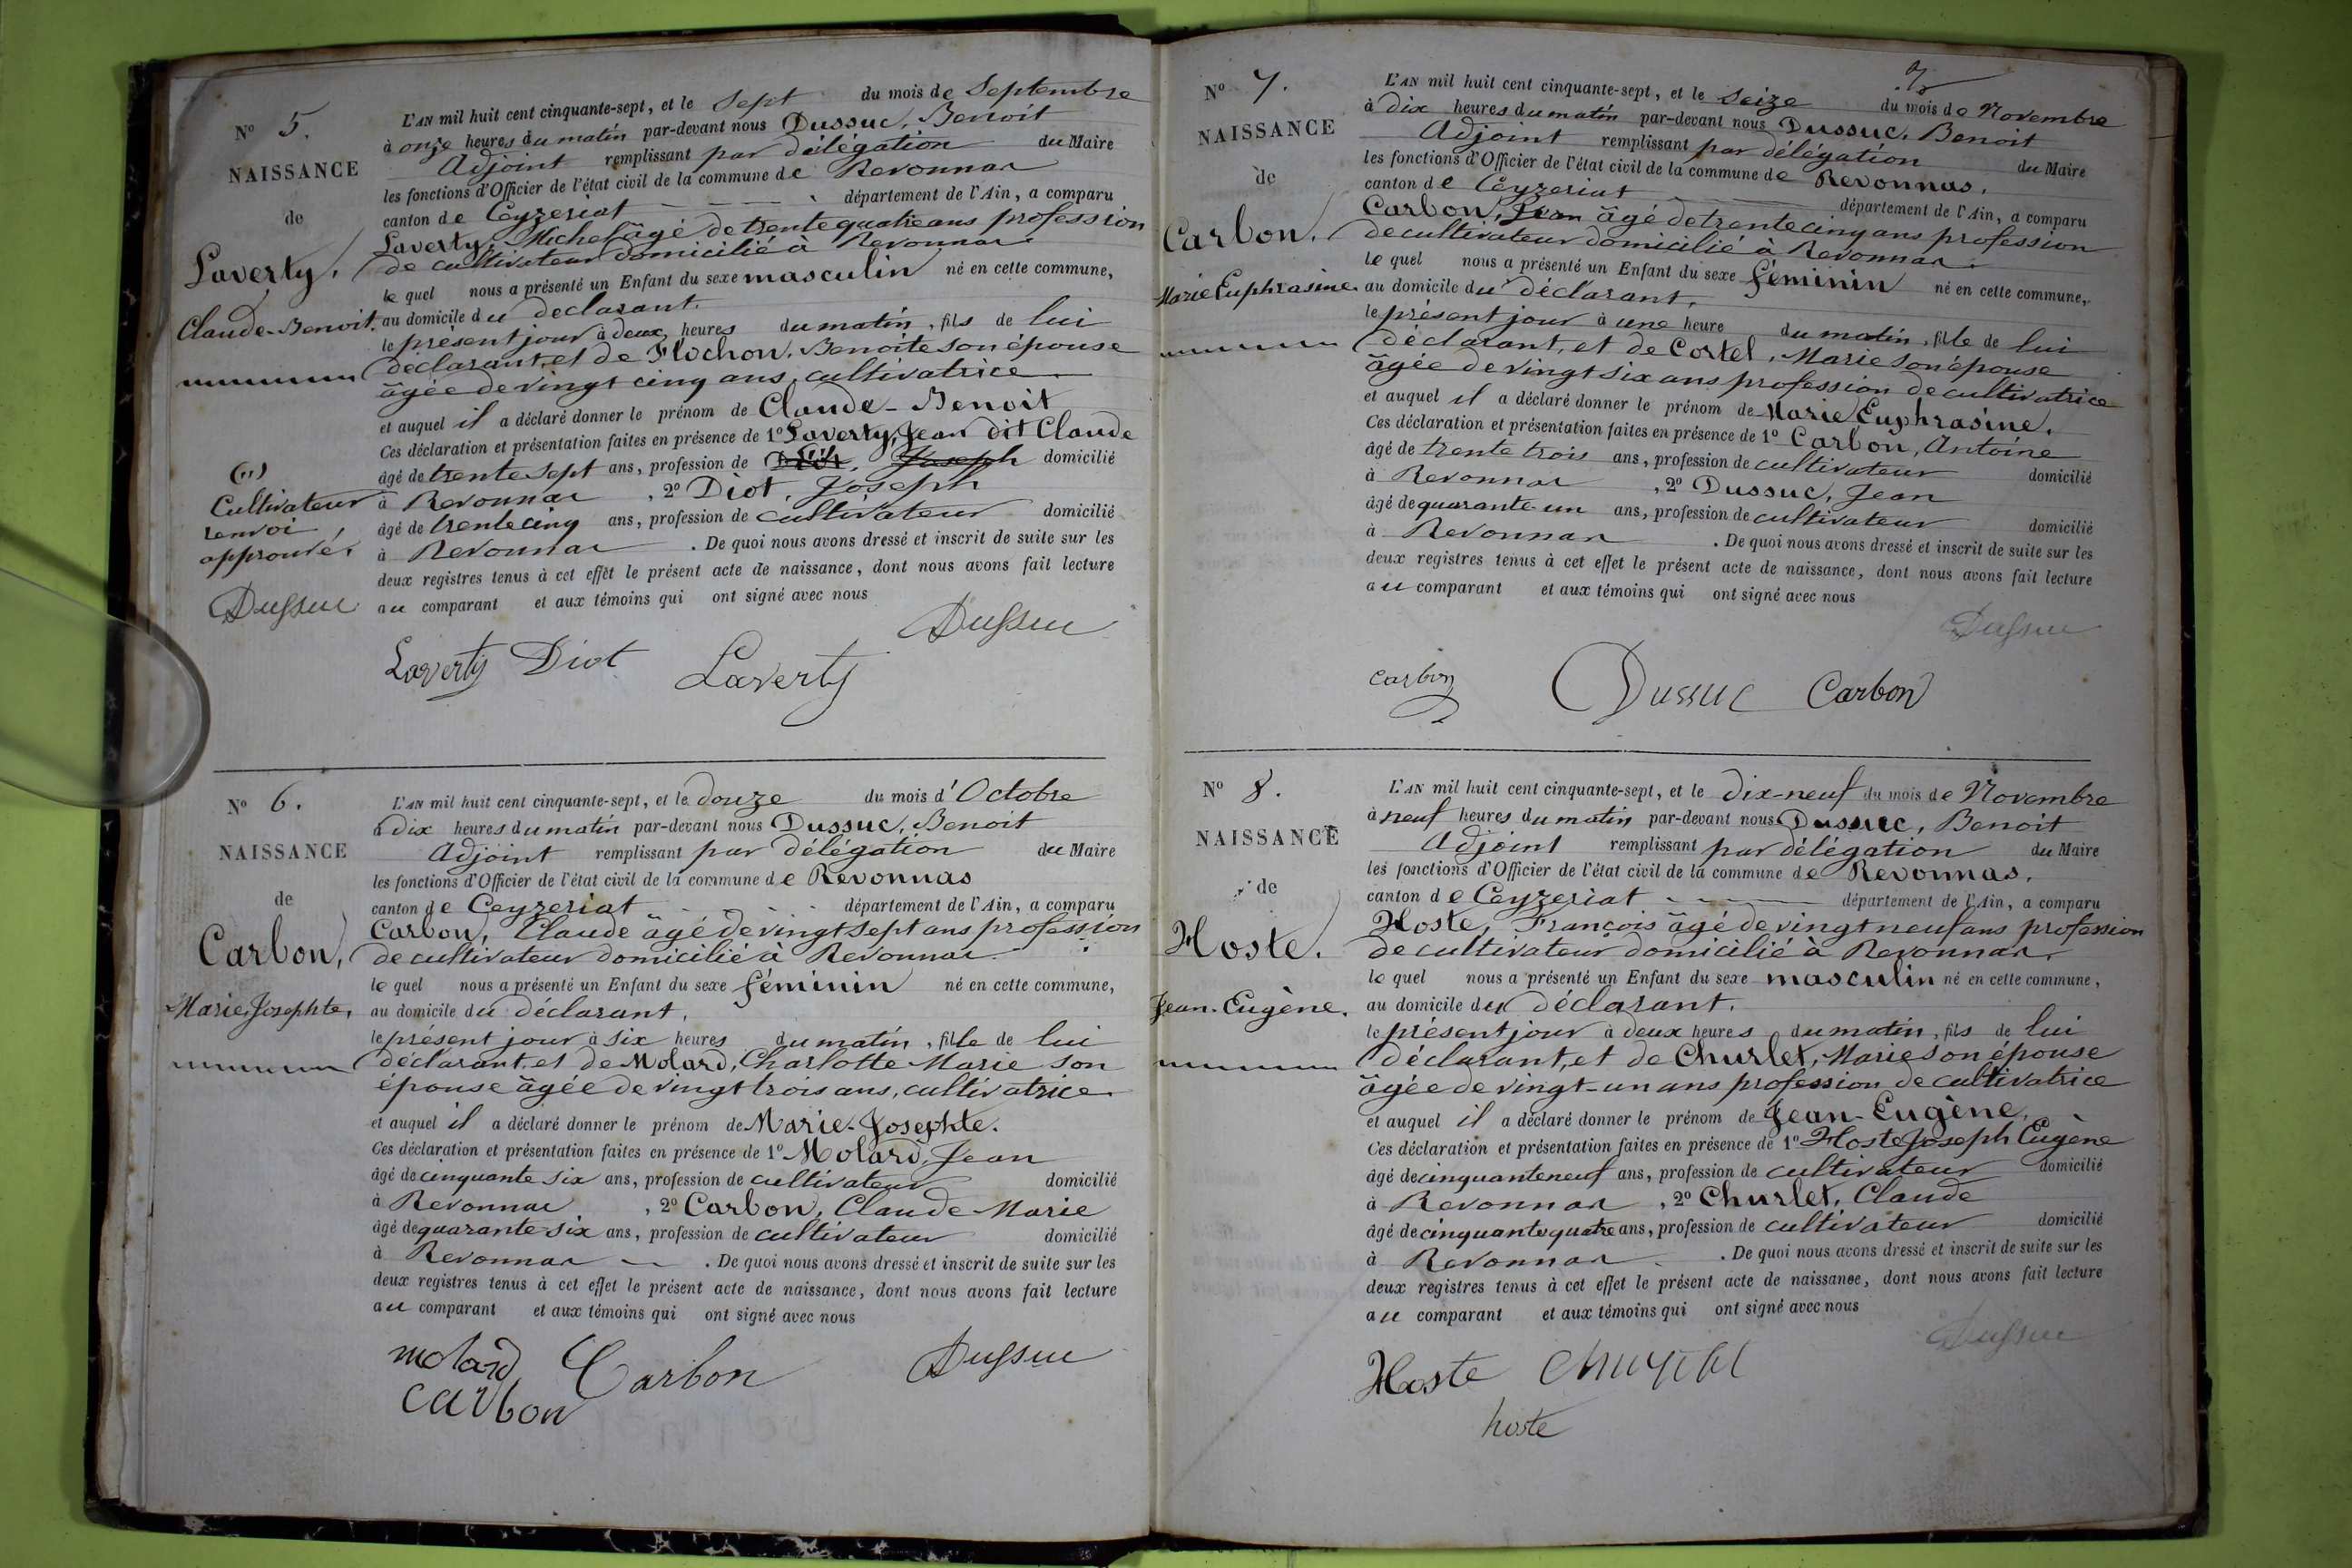 N° 5.
NAISSANCE
de
Laverty,
Claude-Benoit.
(1)
Cultivateur
renvoi
approuvé.
Dussuc
L'AN mil huit cent cinquante-sept, et le sept du mois de Septembre
à onze heures du matin par-devant nous Dussuc, Benoit
Adjoint remplissant par délégation du Maire
les fonctions d'Officier de l'état civil de la commune de Revonnas
canton de Ceyzeriat département de l'Ain, a comparu
Laverty, Michel âgé de trente quatre ans profession
de cultivateur domicilié à Revonnas.
le quel nous a présenté un Enfant du sexe masculin né en cette commune,
au domicile du déclarant.
le présent jour à deux heures du matin, fils de lui
déclarant, et de Flochon, Benoite son épouse
âgée de vingt cinq ans, cultivatrice
et auquel il a déclaré donner le prénom de Claude-Benoit
Ces déclaration et présentation faites en présence de 1° Laverty, Jean dit Claude
âgé de trente sept ans, profession de Diot, Joseph domicilié
à Revonnas, 2° Diot, Joseph
âgé de trente cinq ans, profession de cultivateur domicilié
à Revonnas. De quoi nous avons dressé et inscrit de suite sur les
deux registres tenus à cet effet le présent acte de naissance, dont nous avons fait lecture
au comparant et aux témoins qui ont signé avec nous
Dussuc
Laverty Diot Laverty
N° 6.
NAISSANCE
de
Carbon,
Marie-Josephte.
L'AN mil huit cent cinquante-sept, et le douze du mois d'Octobre
à dix heures du matin par-devant nous Dussuc, Benoit
Adjoint remplissant par délégation du Maire
les fonctions d'Officier de l'état civil de la commune de Revonnas
canton de Ceyzeriat département de l'Ain, a comparu
Carbon, Claude âgé de vingt sept ans profession
de cultivateur domicilié à Revonnas.
le quel nous a présenté un Enfant du sexe féminin né en cette commune,
au domicile du déclarant,
le présent jour à six heures du matin, fille de lui
déclarant, et de Molard, Charlotte Marie son
épouse âgée de vingt trois ans, cultivatrice
et auquel il a déclaré donner le prénom de Marie-Josephte.
Ces déclaration et présentation faites en présence de 1° Molard, Jean
âgé de cinquante six ans, profession de cultivateur domicilié
à Revonnas, 2° Carbon, Claude-Marie
âgé de quarante-six ans, profession de cultivateur domicilié
à Revonnas. De quoi nous avons dressé et inscrit de suite sur les
deux registres tenus à cet effet le présent acte de naissance, dont nous avons fait lecture
au comparant et aux témoins qui ont signé avec nous
molard Carbon Dussuc
carbon
N° 7.
NAISSANCE
de
Carbon.
Marie Euphrasine.
L'AN mil huit cent cinquante-sept, et le seize du mois de Novembre
à dix heures du matin par-devant nous Dussuc, Benoit
Adjoint remplissant par délégation du Maire
les fonctions d'Officier de l'état civil de la commune de Revonnas.
canton de Ceyzeriat département de l'Ain, a comparu
Carbon, Jean âgé de trente cinq ans profession
de cultivateur domicilié à Revonnas.
le quel nous a présenté un Enfant du sexe féminin né en cette commune,
au domicile du déclarant,
le présent jour à une heure du matin, fille de lui
déclarant, et de Cortel, Marie son épouse
âgée de vingt six ans profession de cultivatrice
et auquel il a déclaré donner le prénom de Marie Euphrasine.
Ces déclaration et présentation faites en présence de 1° Carbon, Antoine
âgé de trente trois ans, profession de cultivateur domicilié
à Revonnas, 2° Dussuc, Jean
âgé de quarante-un ans, profession de cultivateur domicilié
à Revonnas. De quoi nous avons dressé et inscrit de suite sur les
deux registres tenus à cet effet le présent acte de naissance, dont nous avons fait lecture
au comparant et aux témoins qui ont signé avec nous
Dussuc
carbon Dussuc Carbon
N° 8.
NAISSANCE
de
Hoste.
Jean-Eugène.
L'AN mil huit cent cinquante-sept, et le dix-neuf du mois de Novembre
à neuf heures du matin par-devant nous Dussuc, Benoit
Adjoint remplissant par délégation du Maire
les fonctions d'Officier de l'état civil de la commune de Revonnas.
canton de Ceyzeriat département de l'Ain, a comparu
Hoste, François âgé de vingt neuf ans profession
de cultivateur domicilié à Revonnas.
le quel nous a présenté un Enfant du sexe masculin né en cette commune,
au domicile du déclarant.
le présent jour à deux heures du matin, fils de lui
déclarant, et de Churlet, Marie son épouse
âgée de vingt-un ans profession de cultivatrice
et auquel il a déclaré donner le prénom de Jean-Eugène,
Ces déclaration et présentation faites en présence de 1° Hoste Joseph Eugène
âgé de cinquante neuf ans, profession de cultivateur domicilié
à Revonnas, 2° Churlet, Claude
âgé de cinquante quatre ans, profession de cultivateur domicilié
à Revonnas. De quoi nous avons dressé et inscrit de suite sur les
deux registres tenus à cet effet le présent acte de naissance, dont nous avons fait lecture
au comparant et aux témoins qui ont signé avec nous
Dussuc
Hoste
hoste